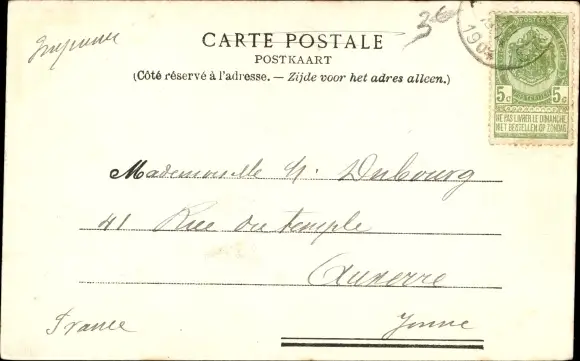 Imprimé
CARTE POSTALE
POSTKAART
(Côté réservé à l'adresse. — Zijde voor het adres alleen.)
POSTES
5c 5c
NE PAS LIVRER LE DIMANCHE
NIET BESTELLEN OP ZONDAG
Mademoiselle M. Dubourg
41 Rue du temple
Auxerre
France Yonne